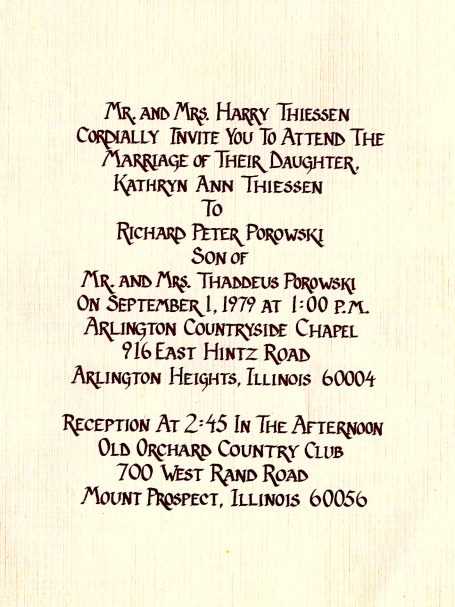 Mr. and Mrs. Harry Thiessen
Cordially Invite You To Attend The
Marriage of Their Daughter,
Kathryn Ann Thiessen
To
Richard Peter Porowski
Son of
Mr. and Mrs. Thaddeus Porowski
On September 1, 1979 at 1:00 P.M.
Arlington Countryside Chapel
916 East Hintz Road
Arlington Heights, Illinois 60004
Reception At 2:45 In The Afternoon
Old Orchard Country Club
700 West Rand Road
Mount Prospect, Illinois 60056